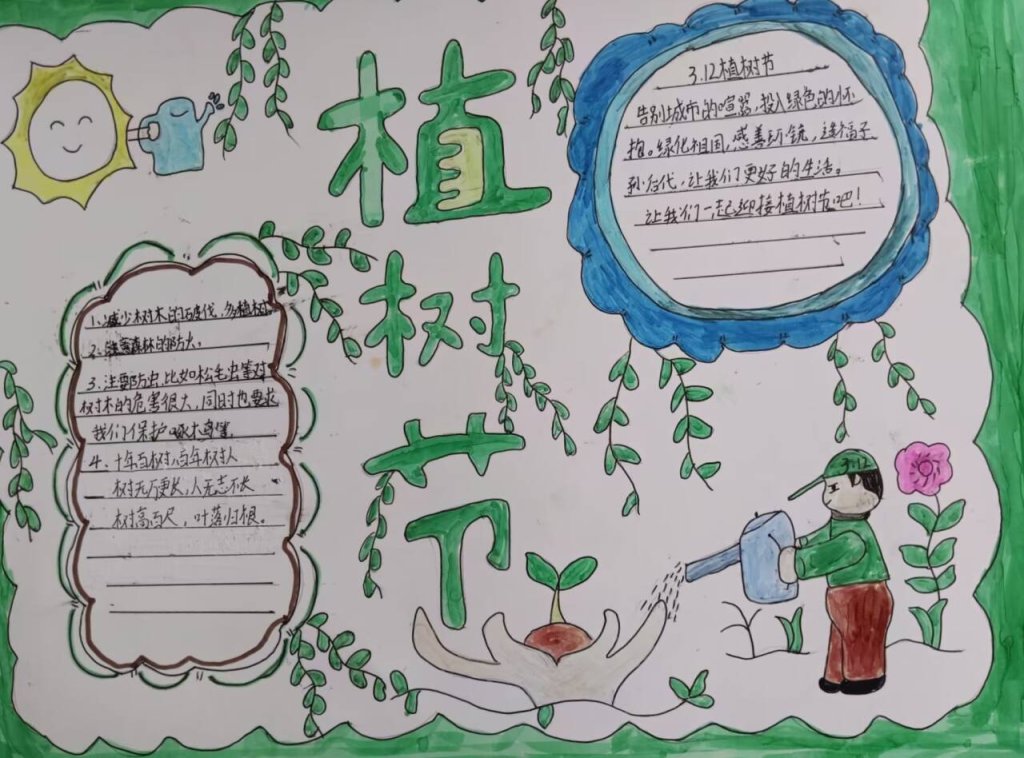 植树节
3.12植树节
告别让城市的喧嚣,投入绿色的怀
抱。绿化祖国,感善环镜,造福子
孙后代,让我们更好的生活。
让我们一起迎接植树节吧!
1、减少树木的砍伐,多植树。
2、注意森林的防火。
3、注要防虫,比如松毛虫等对
树木的危害很大,同时也要求
我们保护啄木鸟等。
4、十年百树,百年树人
树无万更长,人无志不长
树高百尺,叶落归根。
3.12